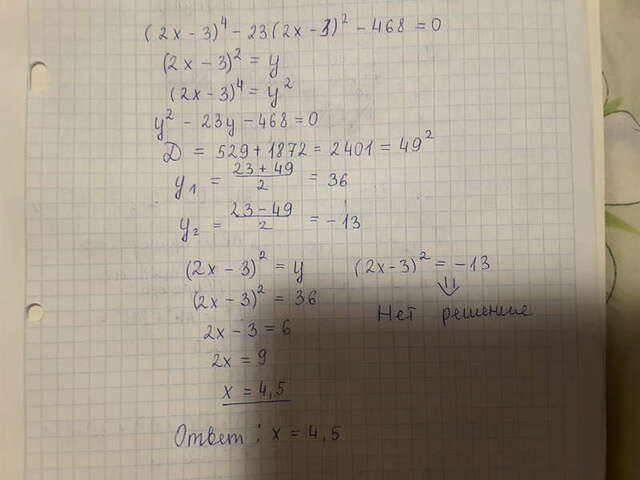 (2x - 3)⁴ - 23(2x - 3)² - 468 = 0
(2x - 3)² = y
(2x - 3)⁴ = y²
y² - 23y - 468 = 0
D = 529 + 1872 = 2401 = 49²
y₁ = (23 + 49)/2 = 36
y₂ = (23 - 49)/2 = -13
(2x - 3)² = y (2x - 3)² = -13
(2x - 3)² = 36 ⇓
2x - 3 = 6 Нет решение
2x = 9
x = 4,5
Ответ: x = 4,5